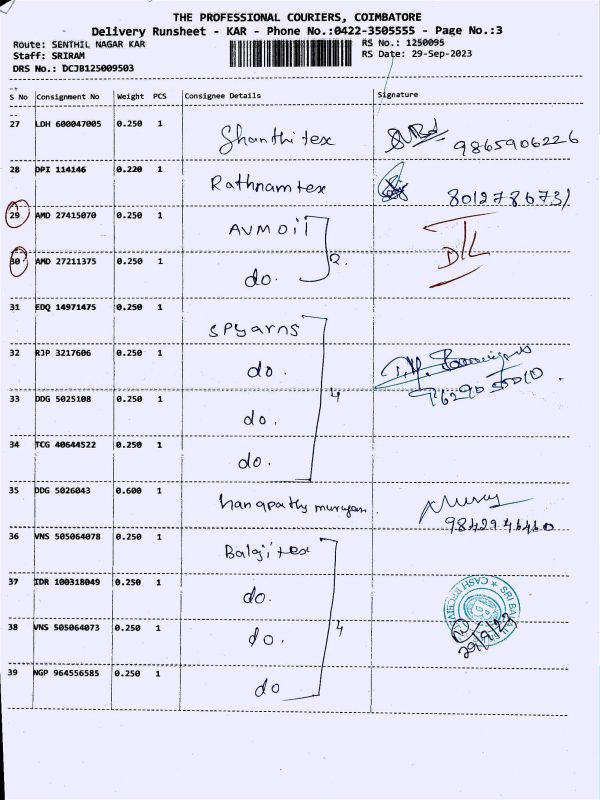 THE PROFESSIONAL COURIERS, COIMBATORE
Delivery Runsheet - KAR - Phone No.:0422-3505555 - Page No.:3
Route: SENTHIL NAGAR KAR RS No.: 1250095
Staff: SRIRAM RS Date: 29-Sep-2023
DRS No.: DCJB125009503
S No Consignment No Weight PCS Consignee Details Signature
27 LDH 600047005 0.250 1 Shanthi tex 9865906226
28 DPI 114146 0.220 1 Rathnam tex 8012786731
29 AMD 27415070 0.250 1 AVM Oil DTL
30 AMD 27211375 0.250 1 do. 2.
31 EDQ 14971475 0.250 1 SPyarns
32 RJP 3217606 0.250 1 do.
33 DDG 5025108 0.250 1 do. 4
34 TCG 40644522 0.250 1 do.
35 DDG 5026043 0.600 1 murugan.
36 VNS 505064078 0.250 1 Balaji tex
37 IDR 100318049 0.250 1 do.
38 VNS 505064073 0.250 1 do. 4
39 NGP 964556585 0.250 1 do